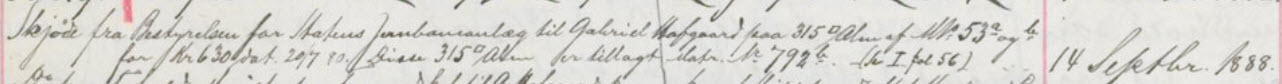 Skjøde fra Bestyrelsen for Statens Jernbaneanlæg til Gabriel Hafgaard paa 315□ Alm af M No 53a og b
for Kr 630, dat. 20/7 80. Disse 315□ Alm er tillagt Matr. Nr 792b. (Lit I fol 56) 14 Septbr. 1888.